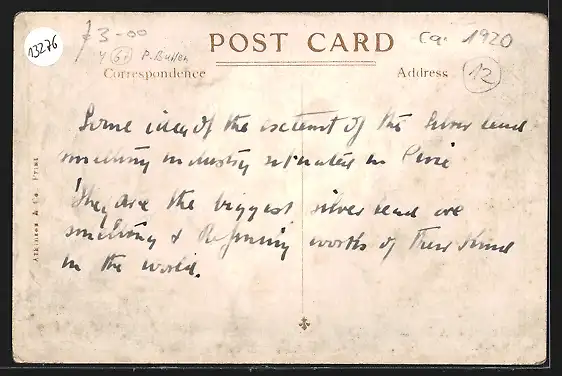 13276
73-00
P. Bullen
POST CARD
ca. 1920
12
Correspondence
Address
Some idea of the extent of the silver lead
smelting industry situated in Pirie
They are the biggest silver lead ore
smelting & Refining works of their kind
in the world.
Atkinson & Co. Print